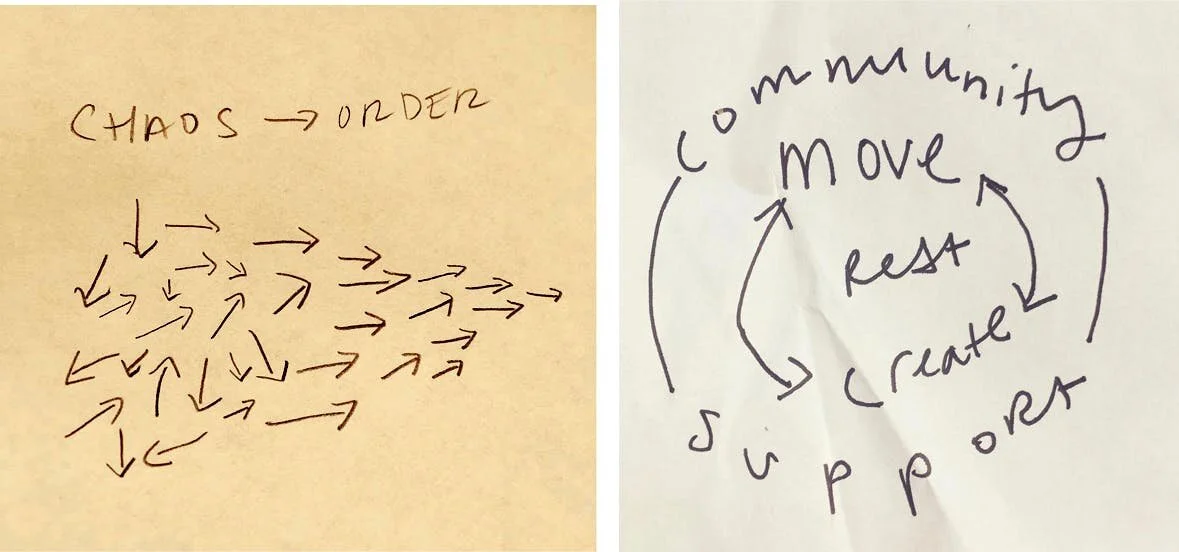 CHAOS → ORDER
community
move
Rest
create
suppoRt